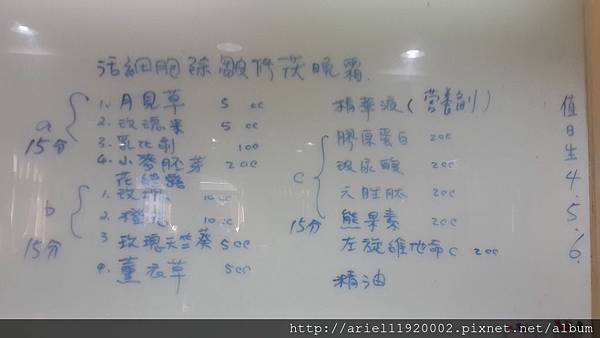 活細胞除皺修茯晚霜.
a 15分
1. 月見草 5 cc
2. 玫瑰果 5 cc
3. 乳化劑 1cc
4. 小麥胚芽 2cc
花純露
b 15分
1. 玫瑰 10cc
2. 橙花 10cc
3 玫瑰天竺葵 5cc
4. 薰衣草 5cc
精華液(營養劑)
c 15分
膠原蛋白 2cc
玻尿酸 2cc
六胜肽 2cc
熊果素 2cc
左旋維他命C 2cc
精油
值日生 4. 5. 6.
http://ariel11920002.pixnet.net/album